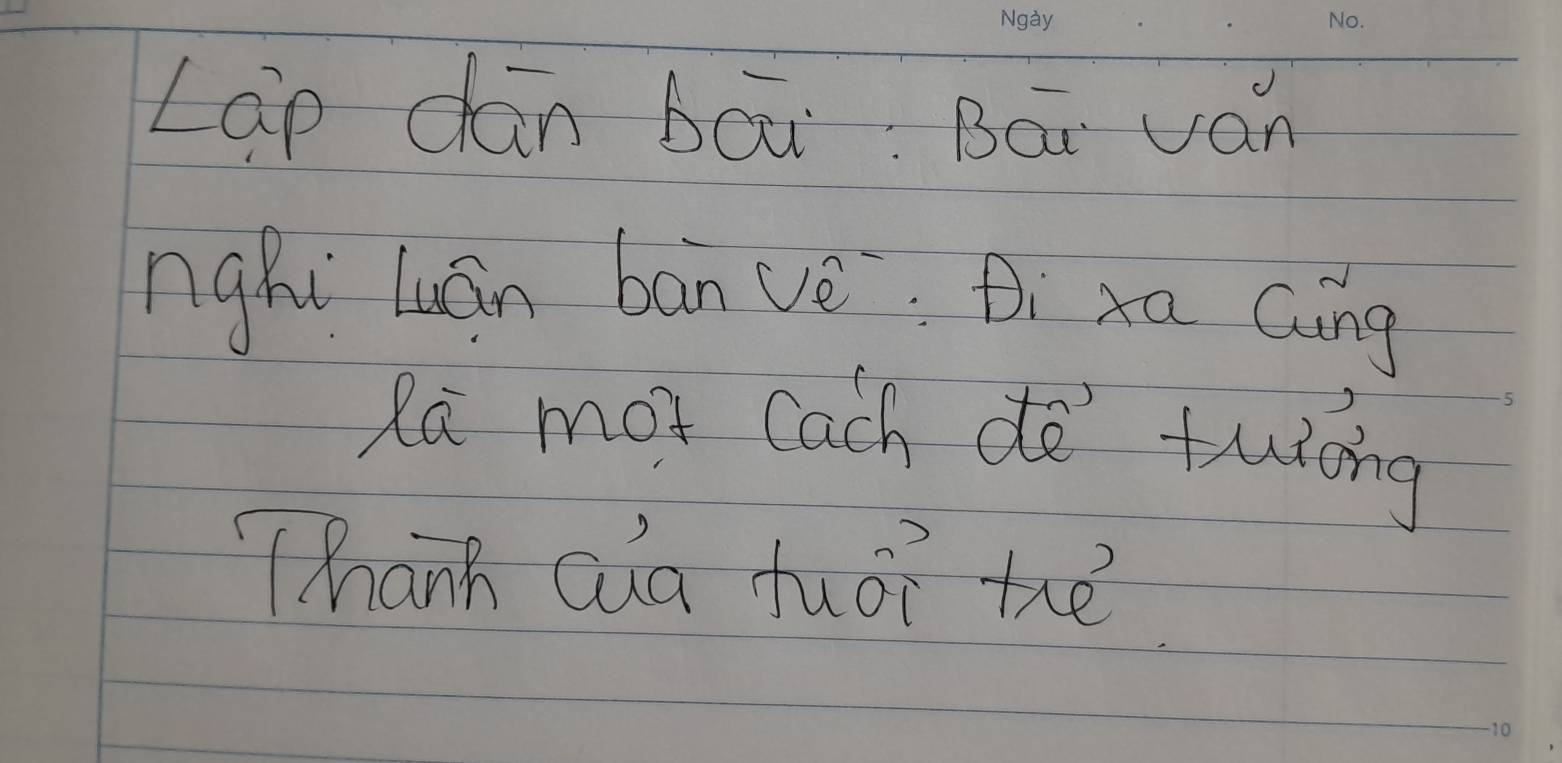 Ngày . . No.
Lập dàn bài : Bài văn
nghị luận bàn về : Đi xa cũng
là một cách để trưởng
5
Thành của tuổi trẻ.
10